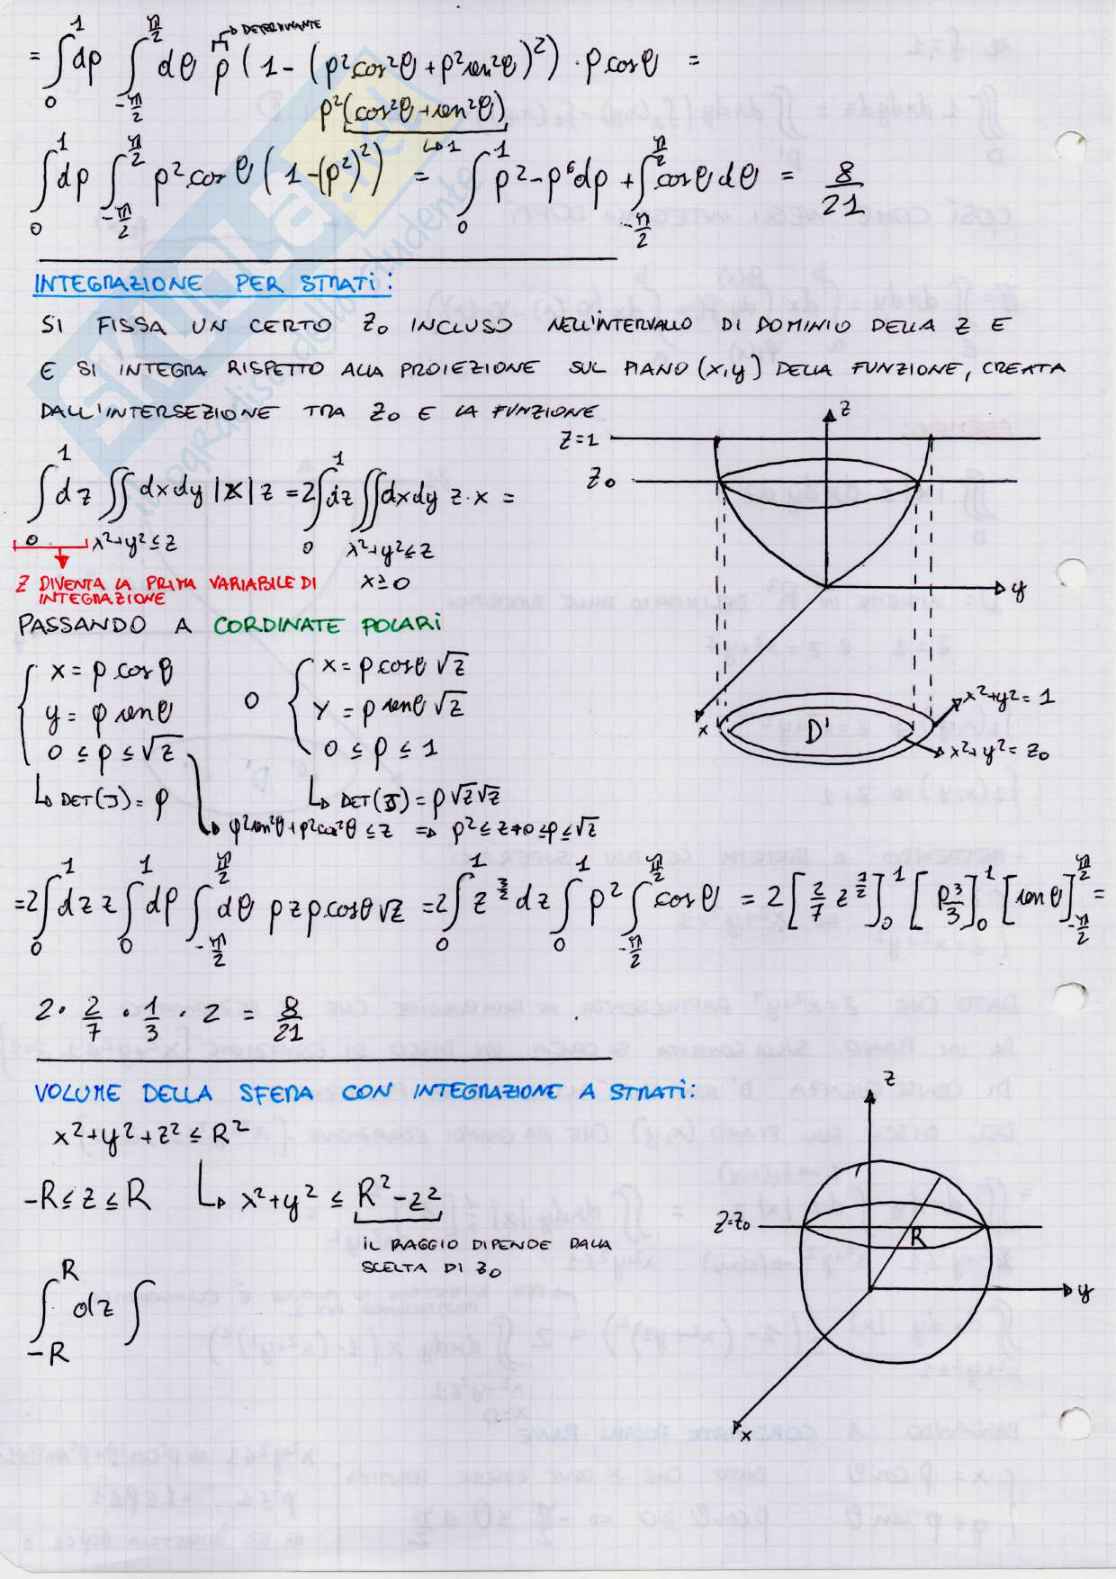 = ∫₀¹ dρ ∫_{-π/2}^{π/2} dθ ρ (1 - (ρ²cos²θ + ρ²sen²θ)²) · ρ cosθ =
↳ DETERMINANTE
ρ²(cos²θ + senθ²)
↳ 1
∫₀¹ dρ ∫_{-π/2}^{π/2} ρ² cosθ (1-(ρ²)²) = ∫₀¹ ρ² - ρ⁶ dρ + ∫_{-π/2}^{π/2} cosθ dθ = 8/21
INTEGRAZIONE PER STRATI:
SI FISSA UN CERTO Z₀ INCLUSO NELL'INTERVALLO DI DOMINIO DELLA Z E
E SI INTEGRA RISPETTO ALLA PROIEZIONE SUL PIANO (x,y) DELLA FUNZIONE, CREATA
DALL'INTERSEZIONE TRA Z₀ E LA FUNZIONE
∫₀¹ dz ∬_{x²+y²≤z} dxdy |x| z = 2∫₀¹ dz ∬_{x²+y²≤z, x≥0} dxdy z·x =
Z DIVENTA LA PRIMA VARIABILE DI
INTEGRAZIONE
z
Z=1
Z₀
y
x
D'
x²+y²=1
x²+y²=Z₀
PASSANDO A CORDINATE POLARI
{ x = ρ cosθ
y = ρ senθ
0 ≤ ρ ≤ √z
↳ DET(J) = ρ
O
{ x = ρcosθ √z
y = ρ senθ √z
0 ≤ ρ ≤ 1
↳ DET(J) = ρ√z√z
↳ ρ²sen²θ + ρ²cos²θ ≤ z ⇒ ρ² ≤ z → 0 ≤ ρ ≤ √z
= 2∫₀¹ dz z ∫₀¹ dρ ∫_{-π/2}^{π/2} dθ ρ z ρ cosθ √z = 2∫₀¹ z^{5/2} dz ∫₀¹ ρ² ∫_{-π/2}^{π/2} cosθ = 2 [2/7 z^{7/2}]₀¹ [ρ³/3]₀¹ [senθ]_{-π/2}^{π/2} =
2 · 2/7 · 1/3 · 2 = 8/21
VOLUME DELLA SFERA CON INTEGRAZIONE A STRATI:
x²+y²+z² ≤ R²
-R ≤ z ≤ R ↳ x²+y² ≤ R²-z²
IL RAGGIO DIPENDE DALLA
SCELTA DI Z₀
∫_{-R}^{R} dz ∫
z
Z=Z₀
R
y
x